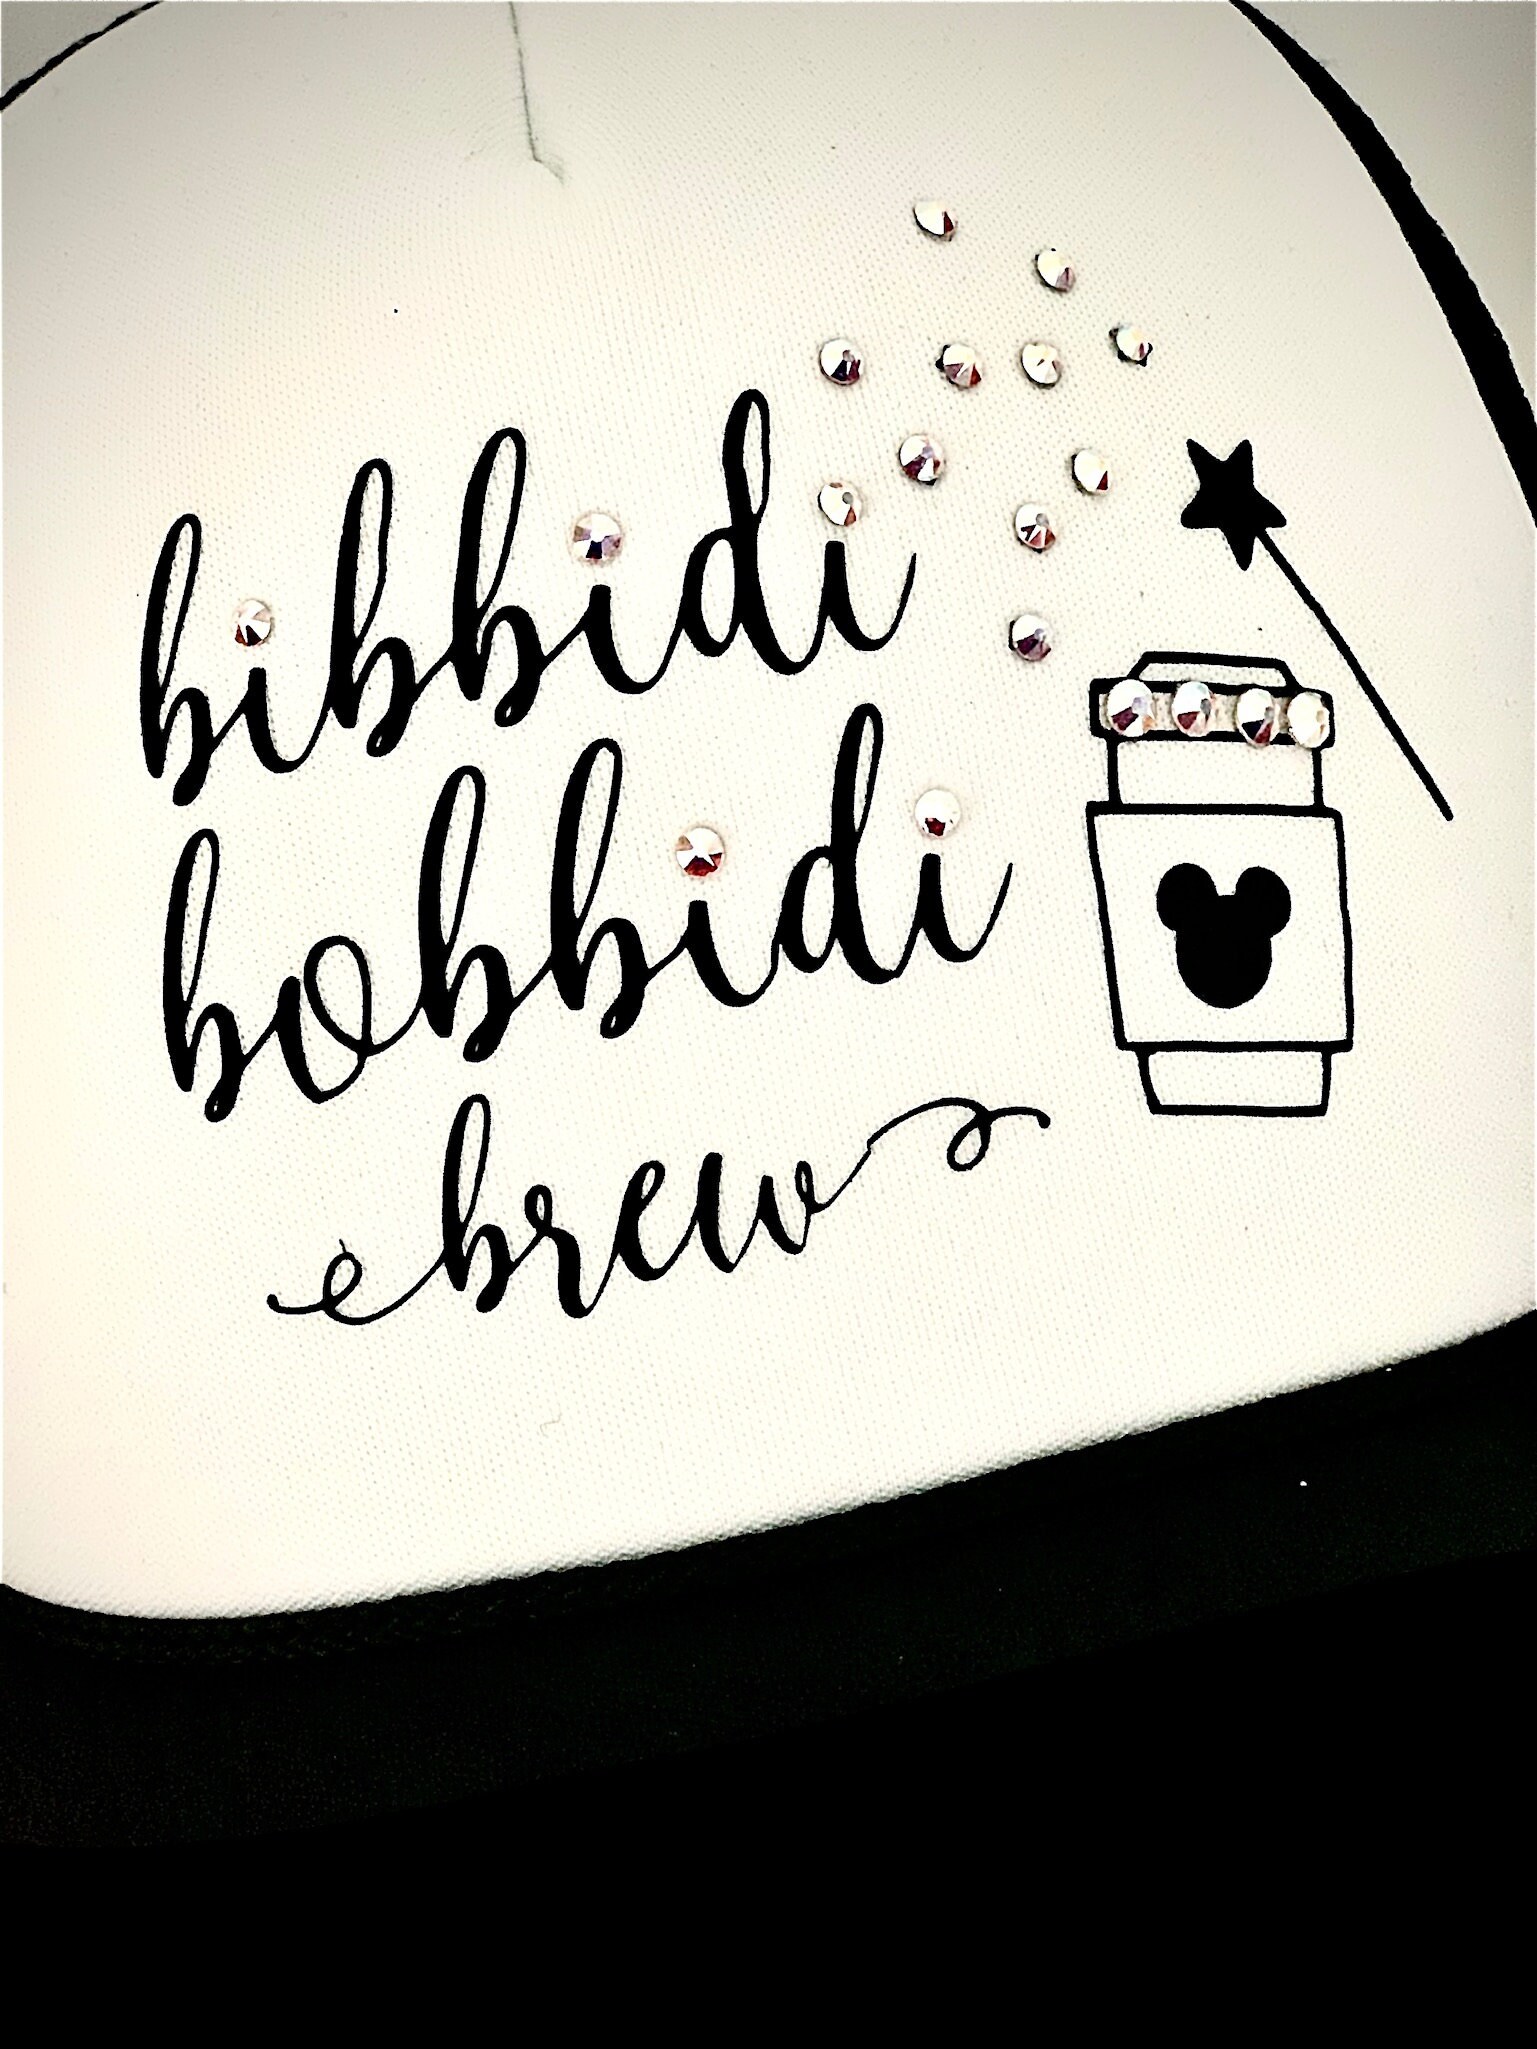 bibbidi
bobbidi
brew